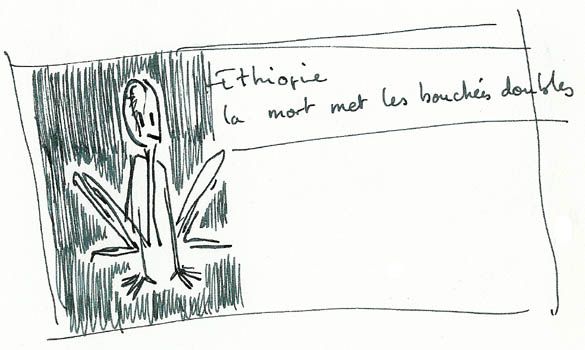 Ethiopie
la mort met les bouchées doubles